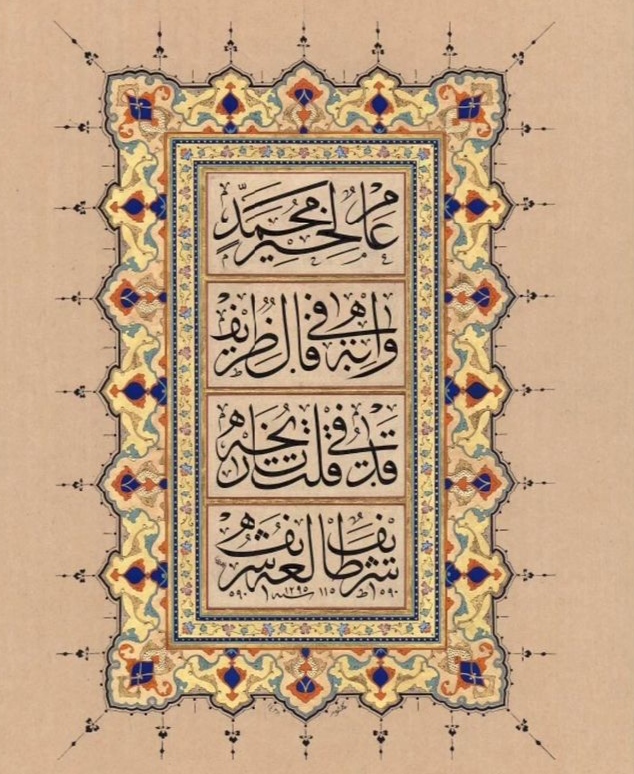 عام الخير محمد
وابنه في فال ظريف
قد ترقى قلت تاريخه
شريف طالعه شريف
٥٩٠ ١١٥ سنة ١٢٩٥ ٥٩٠